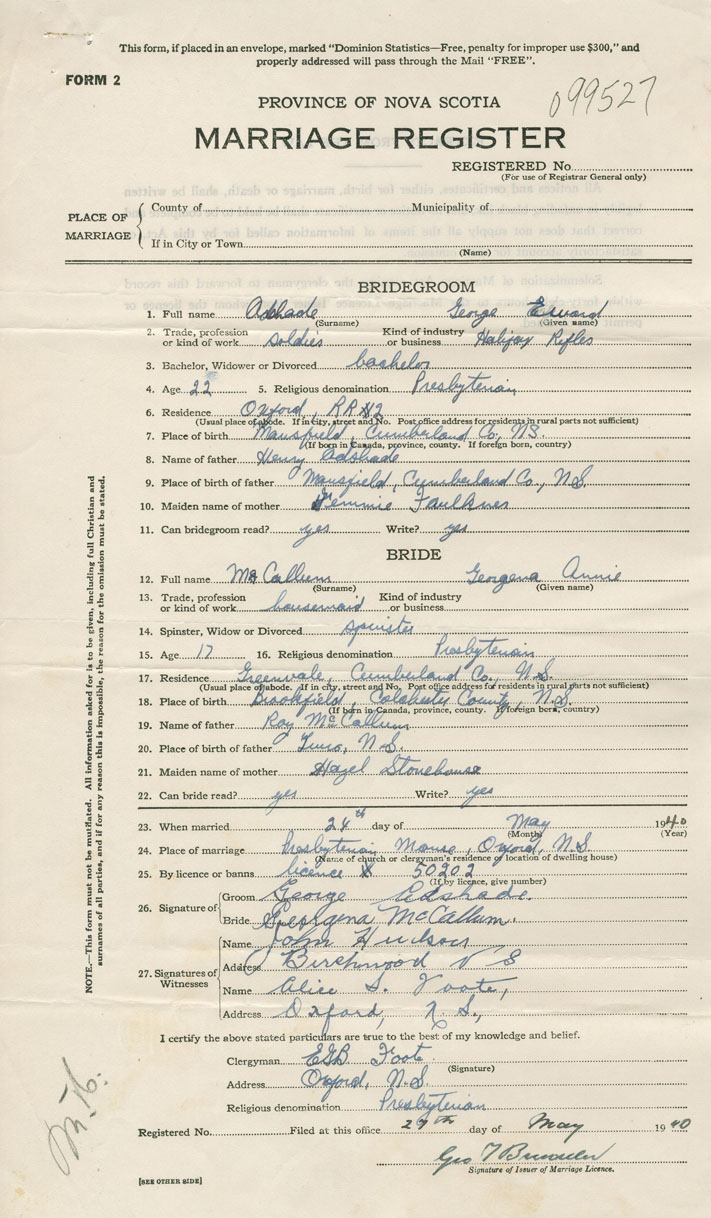 This form, if placed in an envelope, marked "Dominion Statistics—Free, penalty for improper use $300," and
properly addressed will pass through the Mail "FREE".
FORM 2
099527
PROVINCE OF NOVA SCOTIA
MARRIAGE REGISTER
REGISTERED No.
(For use of Registrar General only)
PLACE OF MARRIAGE
County of Municipality of
If in City or Town
(Name)
BRIDEGROOM
1. Full name Adshade George Edward
(Surname) (Given name)
2. Trade, profession or kind of work soldier Kind of industry or business Halifax Rifles
3. Bachelor, Widower or Divorced bachelor
4. Age 22 5. Religious denomination Presbyterian
6. Residence Oxford, RR #2
(Usual place of abode. If in city, street and No. Post office address for residents in rural parts not sufficient)
7. Place of birth Mansfield, Cumberland Co., N.S.
(If born in Canada, province, county. If foreign born, country)
8. Name of father Henry Adshade
9. Place of birth of father Mansfield, Cumberland Co., N.S.
10. Maiden name of mother Jemmie Faulkner
11. Can bridegroom read? yes Write? yes
BRIDE
12. Full name McCallum Georgena Annie
(Surname) (Given name)
13. Trade, profession or kind of work housemaid Kind of industry or business
14. Spinster, Widow or Divorced spinster
15. Age 17 16. Religious denomination Presbyterian
17. Residence Greenvale, Cumberland Co., N.S.
(Usual place of abode. If in city, street and No. Post office address for residents in rural parts not sufficient)
18. Place of birth Brookfield, Colchester County, N.S.
(If born in Canada, province, county. If foreign born, country)
19. Name of father Roy McCallum
20. Place of birth of father Truro, N.S.
21. Maiden name of mother Hazel Stonehouse
22. Can bride read? yes Write? yes
23. When married 24th day of May 1940
(Month) (Year)
24. Place of marriage Presbyterian Manse, Oxford, N.S.
(Name of church or clergyman's residence or location of dwelling house)
25. By licence or banns licence # 50202
(If by licence, give number)
26. Signature of
Groom George Edshade.
Bride Georgena McCallum.
27. Signatures of Witnesses
Name John Hudson
Address Birchwood N S
Name Alice S. Foote,
Address Oxford, N.S.,
I certify the above stated particulars are true to the best of my knowledge and belief.
Clergyman EGB Foote
(Signature)
Address Oxford, N.S.
Religious denomination Presbyterian
Registered No. Filed at this office 27th day of May 1940
Geo T
Signature of Issuer of Marriage Licence.
[SEE OTHER SIDE]
NOTE.—This form must not be mutilated. All information asked for is to be given, including full Christian and
surnames of all parties, and if for any reason this is impossible, the reason for the omission must be stated.